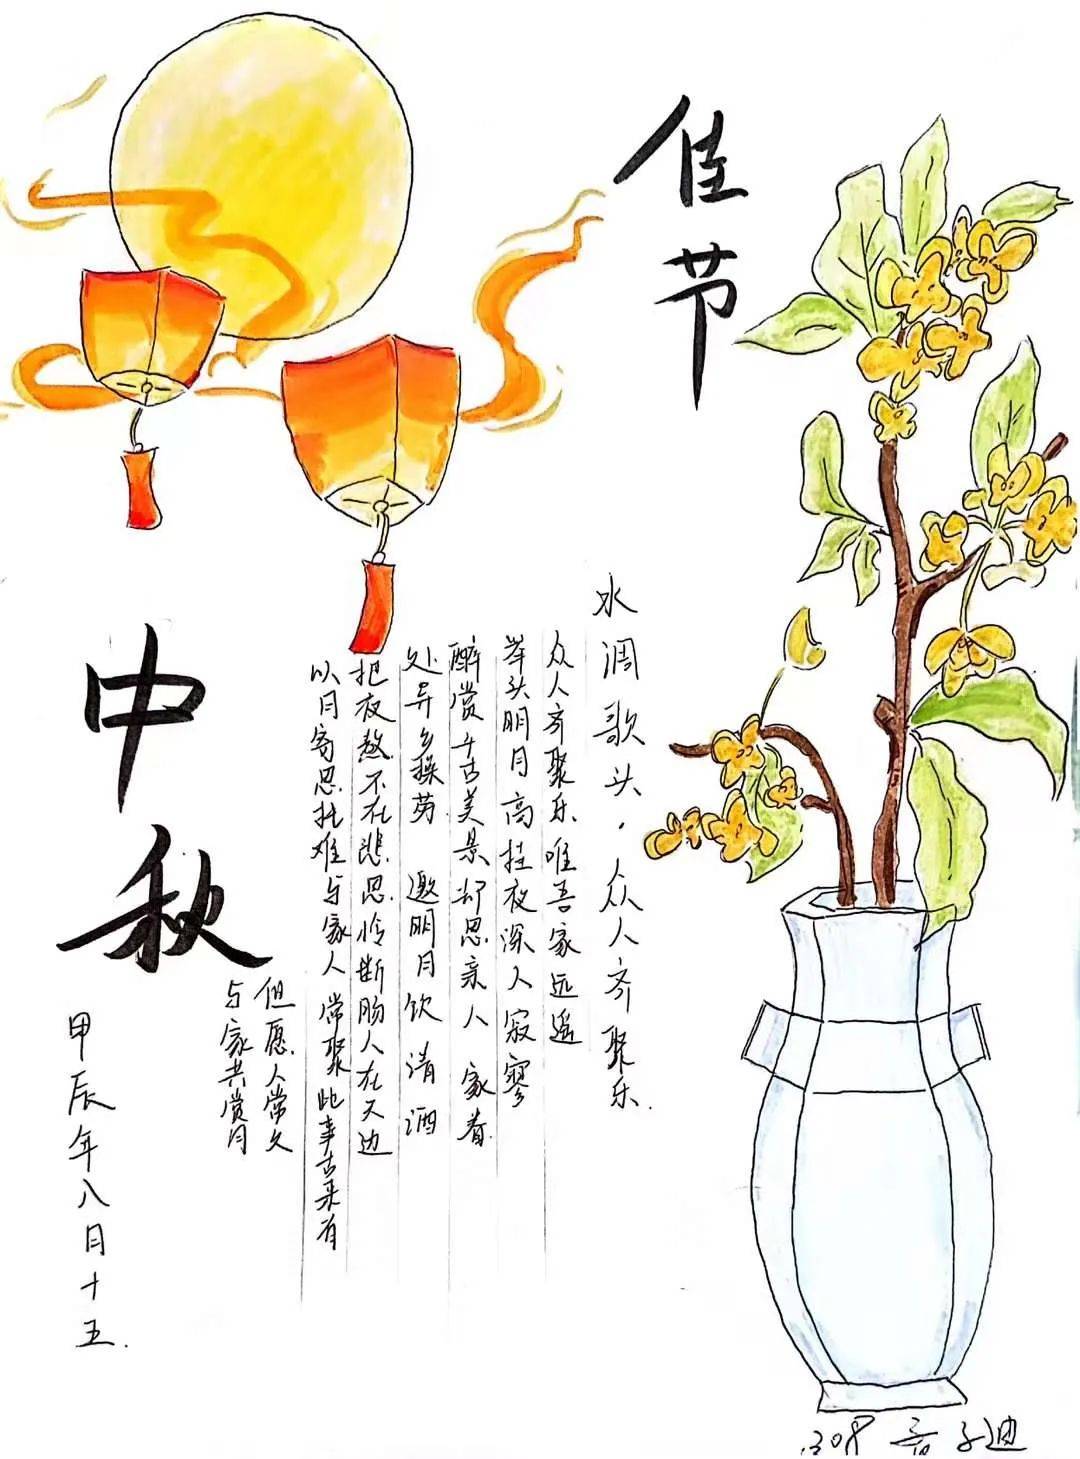 佳节
水调歌头·众人齐聚乐.
众人齐聚乐唯吾家远遥
举头明月高挂夜深人寂寥
醉赏千古美景却思亲人 家眷
处异乡操劳 邀明月饮清酒
把夜熬不在悲思怜断肠人在天边
以月寄思托难与家人常聚此事古来有
但愿人常久
与家共赏月
中秋
甲辰年八月十五.
308 子迪